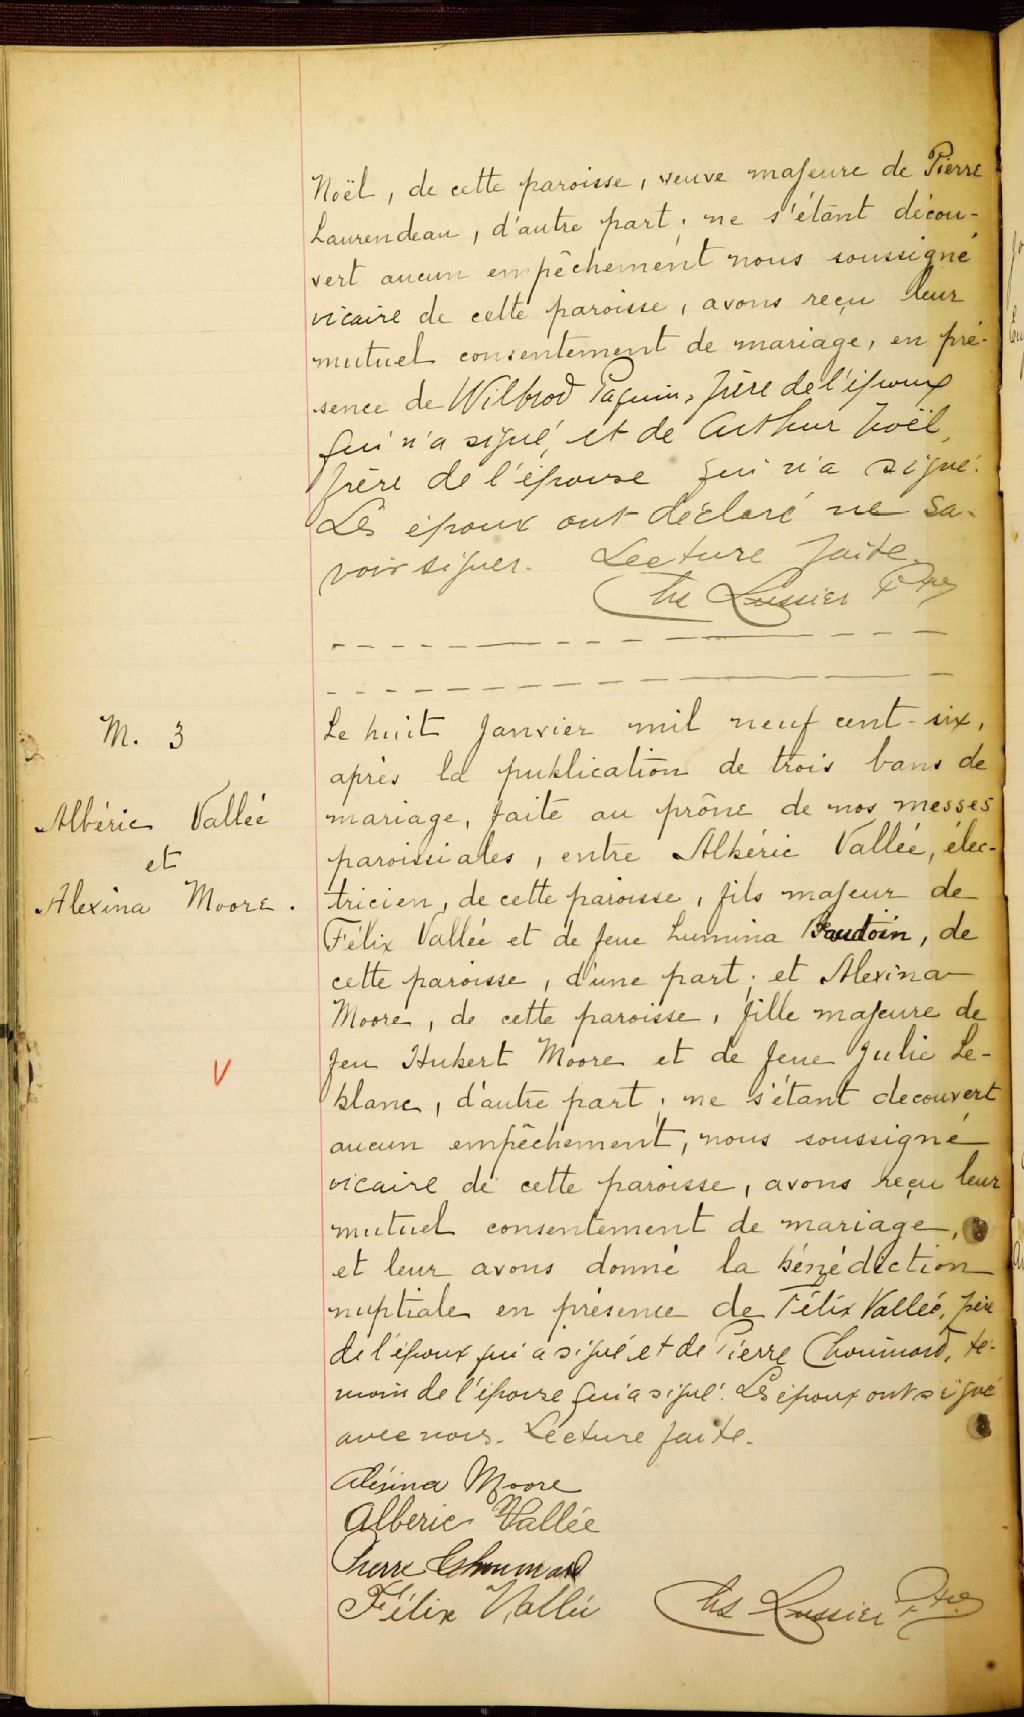 Noël, de cette paroisse, veuve majeure de Pierre
Laurendeau, d'autre part; ne s'étant décou-
vert aucun empêchement nous soussigné
vicaire de cette paroisse, avons reçu leur
mutuel consentement de mariage, en pré-
sence de Wilbrod Paquin, frère de l'époux
qui n'a signé, et de Arthur Noël,
frère de l'épouse qui n'a signé.
Les époux ont déclaré ne sa-
voir signer. Lecture faite.
Chs Lussier Ptre
M. 3
Albéric Vallée
et
Alexina Moore.
V
Le huit Janvier mil neuf cent-six,
après la publication de trois bans de
mariage, faite au prône de nos messes
paroissiales, entre Albéric Vallée, élec-
tricien, de cette paroisse, fils majeur de
Félix Vallée et de feue Lumina Baudoin, de
cette paroisse, d'une part; et Alexina
Moore, de cette paroisse, fille majeure de
feu Hubert Moore et de feue Julie Le-
blanc, d'autre part; ne s'étant decouvert
aucun empêchement, nous soussigné
vicaire de cette paroisse, avons reçu leur
mutuel consentement de mariage,
et leur avons donné la bénédiction
nuptiale en présence de Félix Vallée, père
de l'époux qui a signé et de Pierre Chouinard, té-
moin de l'épouse qui a signé. Les époux ont signé
avec nous. Lecture faite.
Alexina Moore
Alberic Vallée
Pierre Chouinard
Félix Vallée Chs Lussier Ptre